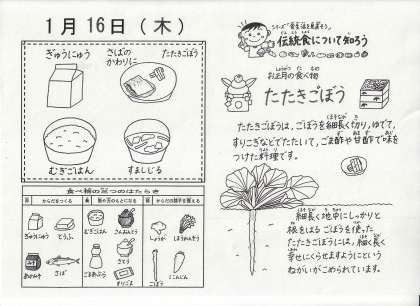 1月16日（木）
ぎゅうにゅう
さばの
かわりに
たたきごぼう
むぎごはん
すましじる
食べ物の三つのはたらき
からだをつくる
熱や力のもとになる
からだの調子を整える
ぎゅうにゅう
とうふ
さば
むぎごはん
さとう
しょうが
ほうれんそう
ごぼう
こんにゃく
伝統食について知ろう
お正月の食べ物
たたきごぼう
たたきごぼうは、ごぼうを細長く切り、ゆでて、
すりこぎなどでたたいて、ごま酢や甘酢で味を
つけた料理です。
細長く地中にしっかりと
根をはるごぼうを使った
たたきごぼうには、細く長く
幸せにくらせますようにという
ねがいがこめられています。